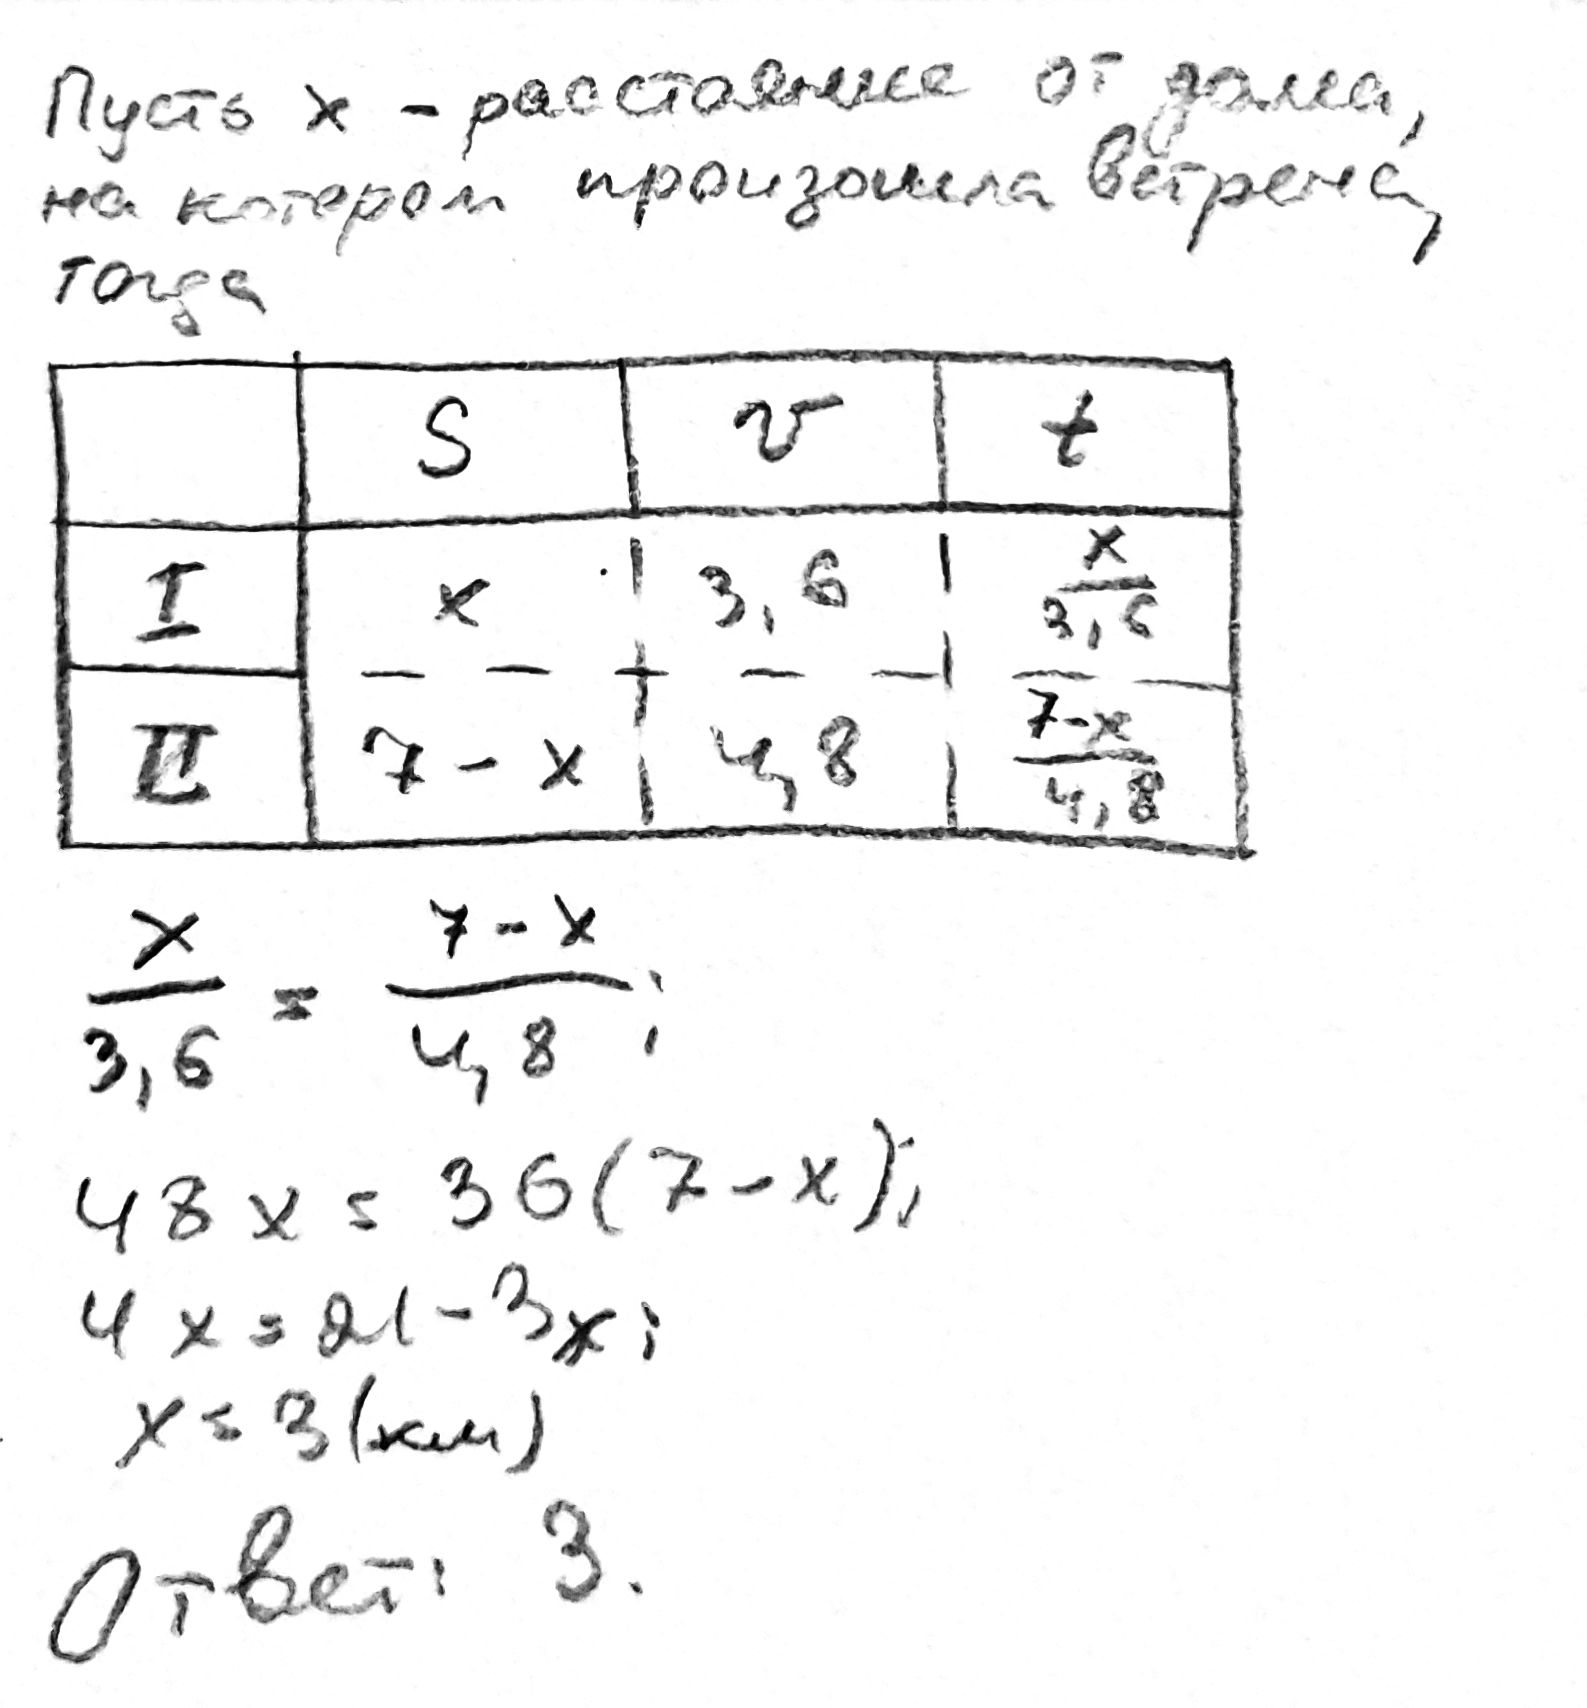 Пусть x - расстояние от дома,
на котором произошла встреча,
тогда
S v t
I x 3,6 x/3,6
II 7 - x 4,8 7-x/4,8
x/3,6 = 7-x/4,8;
48x = 36(7-x);
4x = 21 - 3x;
x = 3 (км)
Ответ: 3.